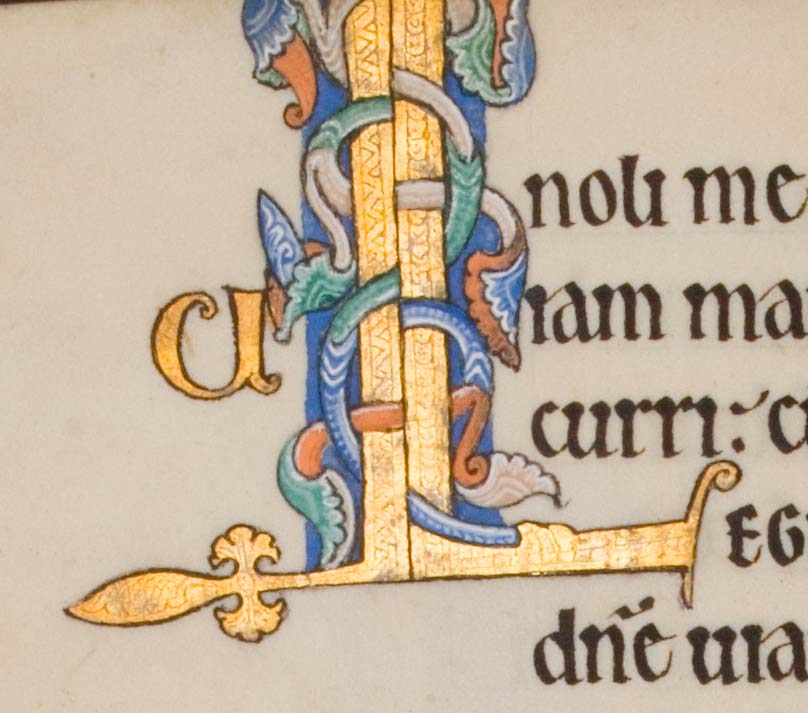 noli me
Uiam ma
curri: c
LEG
dn̄e uia